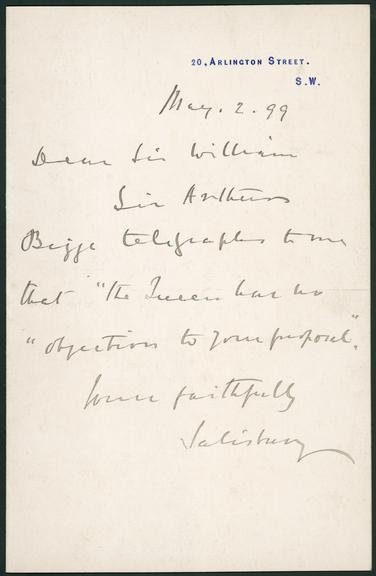 20, ARLINGTON STREET.
S.W.
May. 2. 99
Dear Sir William
Sir Arthur
Bigge telegraphs to me
that "the Queen has no
"objections to your proposal".
Yours faithfully
Salisbury